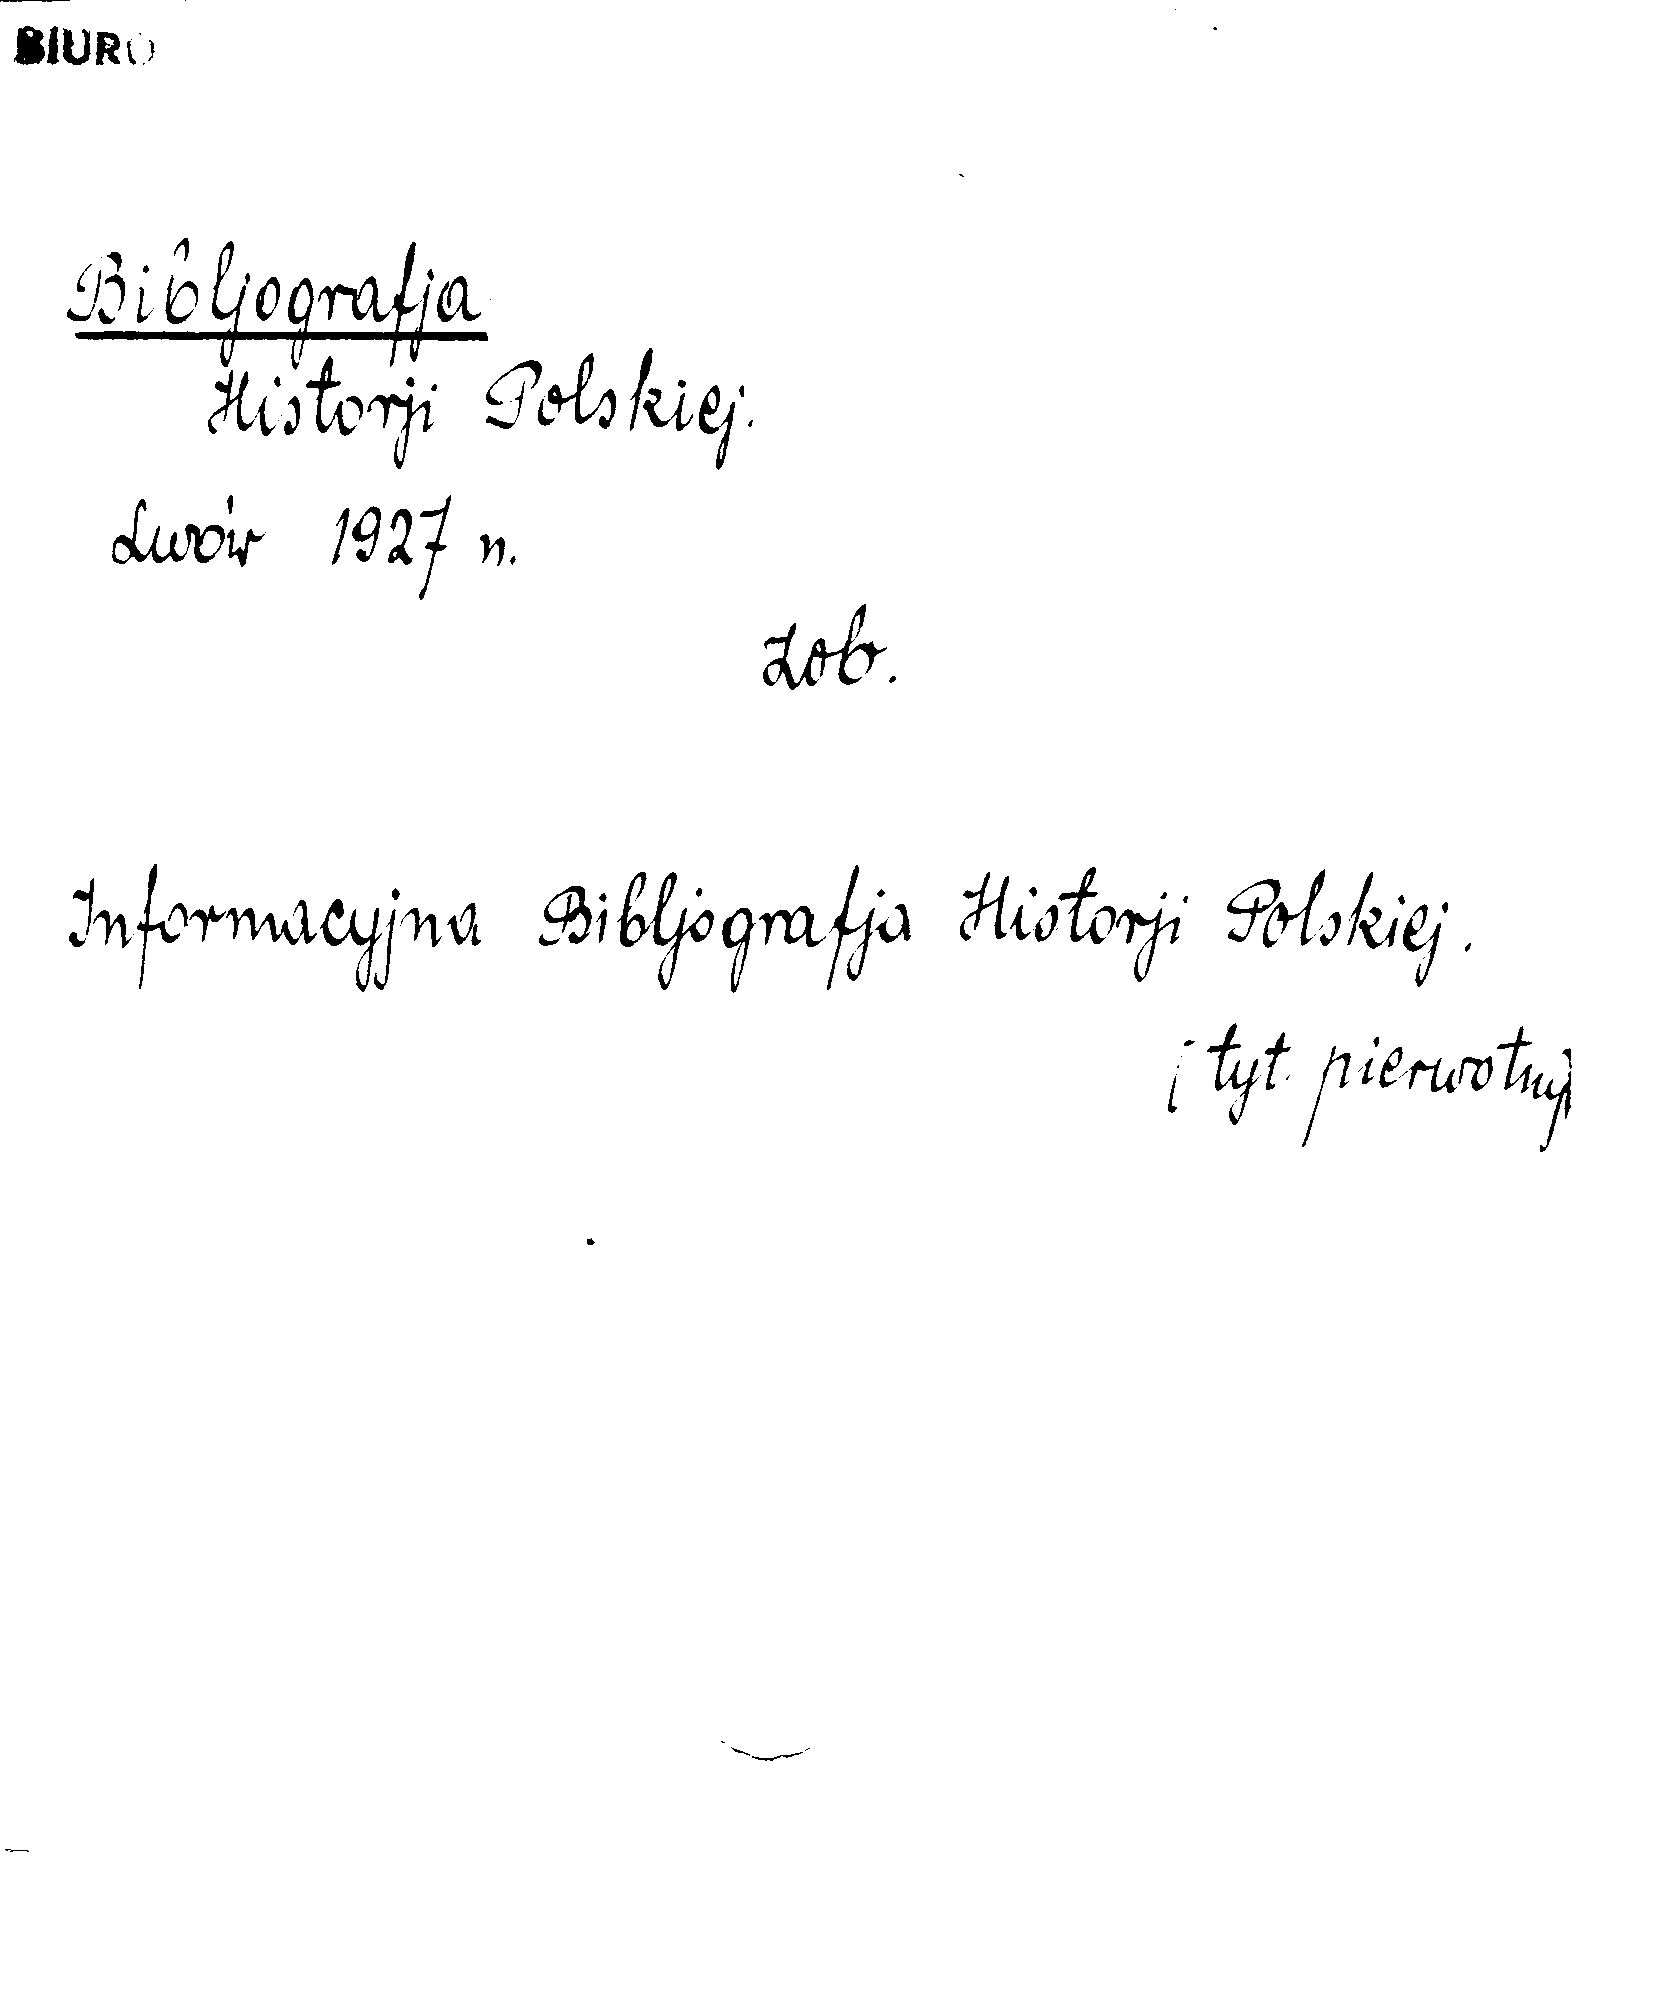 BIURO
Bibljografja
Historji Polskiej.
Lwów 1927 n.
Zob.
Informacyjna Bibljografja Historji Polskiej.
(tyt. pierwotny)